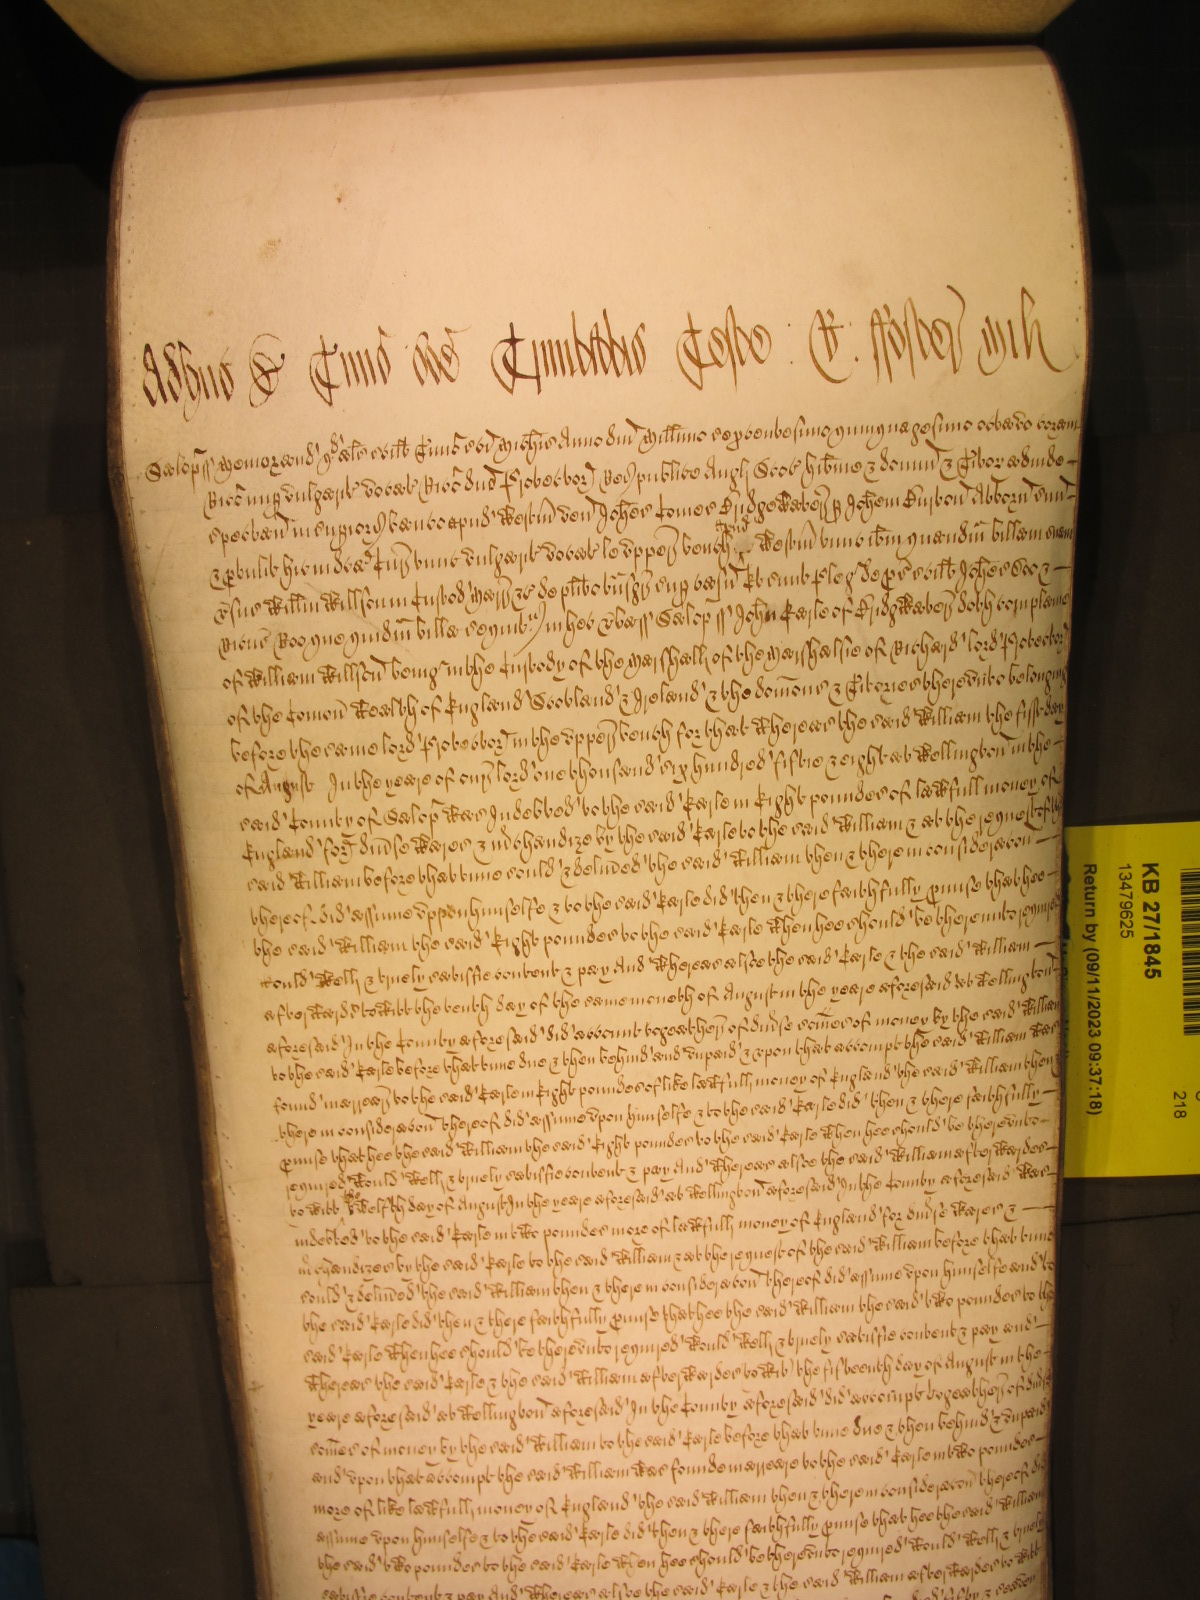 Adhuc de Termino sce Trinitatis Teste : E . ffoster mil
Salop ss Memorand qd als scilt Termino sci Michis Anno dni Millimo sexcentesimo quinquagesimo octavo coram
Ricō nup vulgarit vocat Ricō dnō Protectore Reipublice Angl Scoc hibnie & domin & Titor eisdem
spectan in supiori banco apud Westm ven Johes Carles Bridgewater p Johem Attorn suu
& ptulit hic in dca Cur tunc vulgarit vocat le upper bench apud Westm tunc ibm quandm billam suam
vsus Willm Willson in Custod Marr &c de plito tnsgr sup casum Et sunt pleg de ps scilt Johes Doe &
Ricus Roo que quidm billa sequit in hec vba ss Salop ss John Carle of Bridgwater doth complaine
of William Willson being in the Custody of the Marshall of the Marshalsie of Richard lord Protector
of the Comon Wealth of England Scotland & Ireland & the domons & Titories thereunto belonging
before the same lord Protector in the upper bench for that Whereas the said William the first day
of August In the yeare of our lord one thousand six hundred fiftie & eight at Wellington in the
said County of Salop was Indebted to the said Carle in Eight poundes of lawfull money of
England for divse wares & mchandize by the said Carle to the said William & at the request of the
said William before that time sould & delived the said William then & there in consideracon
thereof did assume uppon himselfe & to the said Carle did then & there faithfully pmise that hee
the said William the said Eight poundes to the said Carle when hee should be thereunto required
would well & truely satisfie content & pay And Whereas alsoe the said Carle & the said William
afterwards to witt the tenth day of the same moneth of August in the yeare aforesaid at Wellington
aforesaid in the County aforesaid did accompt togeather of divse somes of money by the said William
to the said Carle before that time due & then behind and unpaid & upon that accompt the said William was
found in arreares to the said Carle in Eight poundes of like lawfull money of England the said William then &
there in consideracon thereof did assume upon himselfe & to the said Carle did then & there faithfully
pmise that hee the said William the said Eight poundes to the said Carle when hee should be thereunto
required would well & truely satisfie content & pay And Whereas alsoe the said William afterwardes
to witt the twelfth day of August In the yeare aforesaid at Wellington aforesaid In the County aforesaid was
indebted to the said Carle in two poundes more of lawfull money of England for divse wares &
mchandizes by the said Carle to the said William & at the request of the said William before that time
sould & delived the said William then & there in consideracon thereof did assume upon himselfe and to
the said Carle did then & there faithfully pmise that hee the said William the said two poundes to the
said Carle when hee should be thereunto required would well & truely satisfie content & pay and
Whereas the said Carle & the said William afterwardes to wit the fifteenth day of August in the
yeare aforesaid at Wellington aforesaid In the County aforesaid did accompt togeather of divse
somes of money by the said William to the said Carle before that time due & then behind & unpaid
and upon that accompt the said William was found in arreare to the said Carle in two poundes
more of like lawfull money of England the said William then & there in consideracon thereof did
assume upon himselfe & to the said Carle did then & there faithfully pmise that hee the said William
the said two poundes to the said Carle when hee should be thereunto required would well & truely
satisfie content & pay And Whereas alsoe the said Carle & the said William afterwardes to witt
KB 27/1845
13479625
Return by (09/11/2023 09:37:18)
218